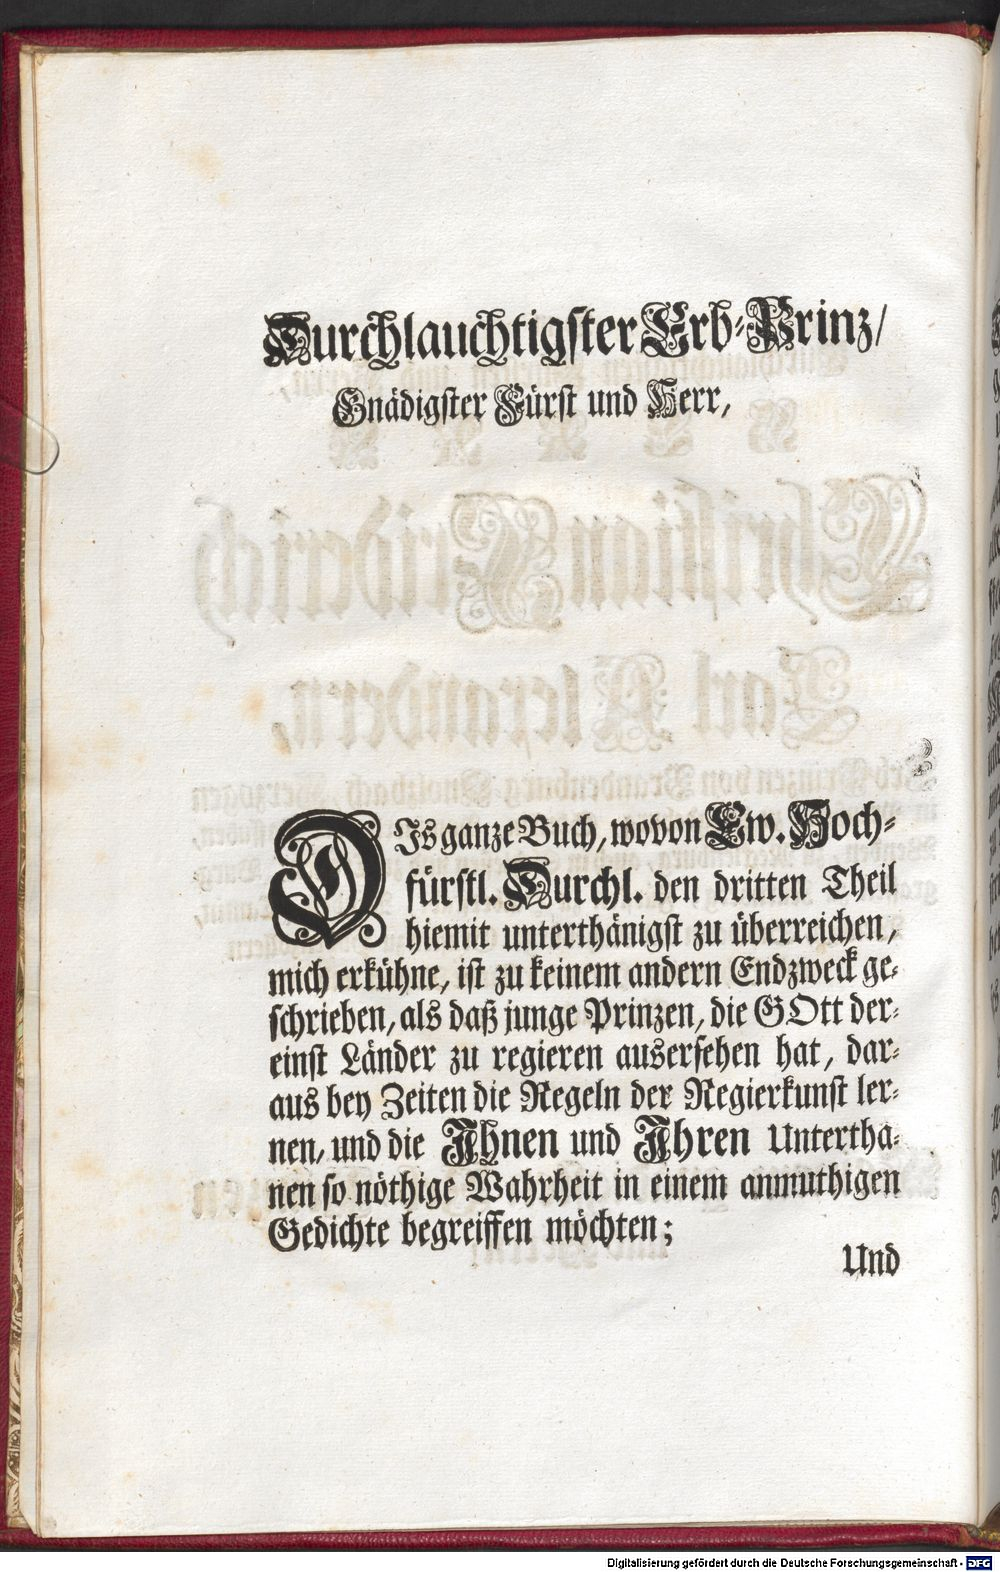 Durchlauchtigster Erb-Prinz/
Gnädigster Fürst und Herr,
DIs ganze Buch, wovon Ew. Hoch-
fürstl. Durchl. den dritten Theil
hiemit unterthänigst zu überreichen,
mich erkühne, ist zu keinem andern Endzweck ge-
schrieben, als daß junge Prinzen, die GOtt der-
einst Länder zu regieren ausersehen hat, dar-
aus bey Zeiten die Regeln der Regierkunst ler-
nen, und die Ihnen und Ihren Untertha-
nen so nöthige Wahrheit in einem anmuthigen
Gedichte begreiffen möchten;
Und
Digitalisierung gefördert durch die Deutsche Forschungsgemeinschaft - DFG